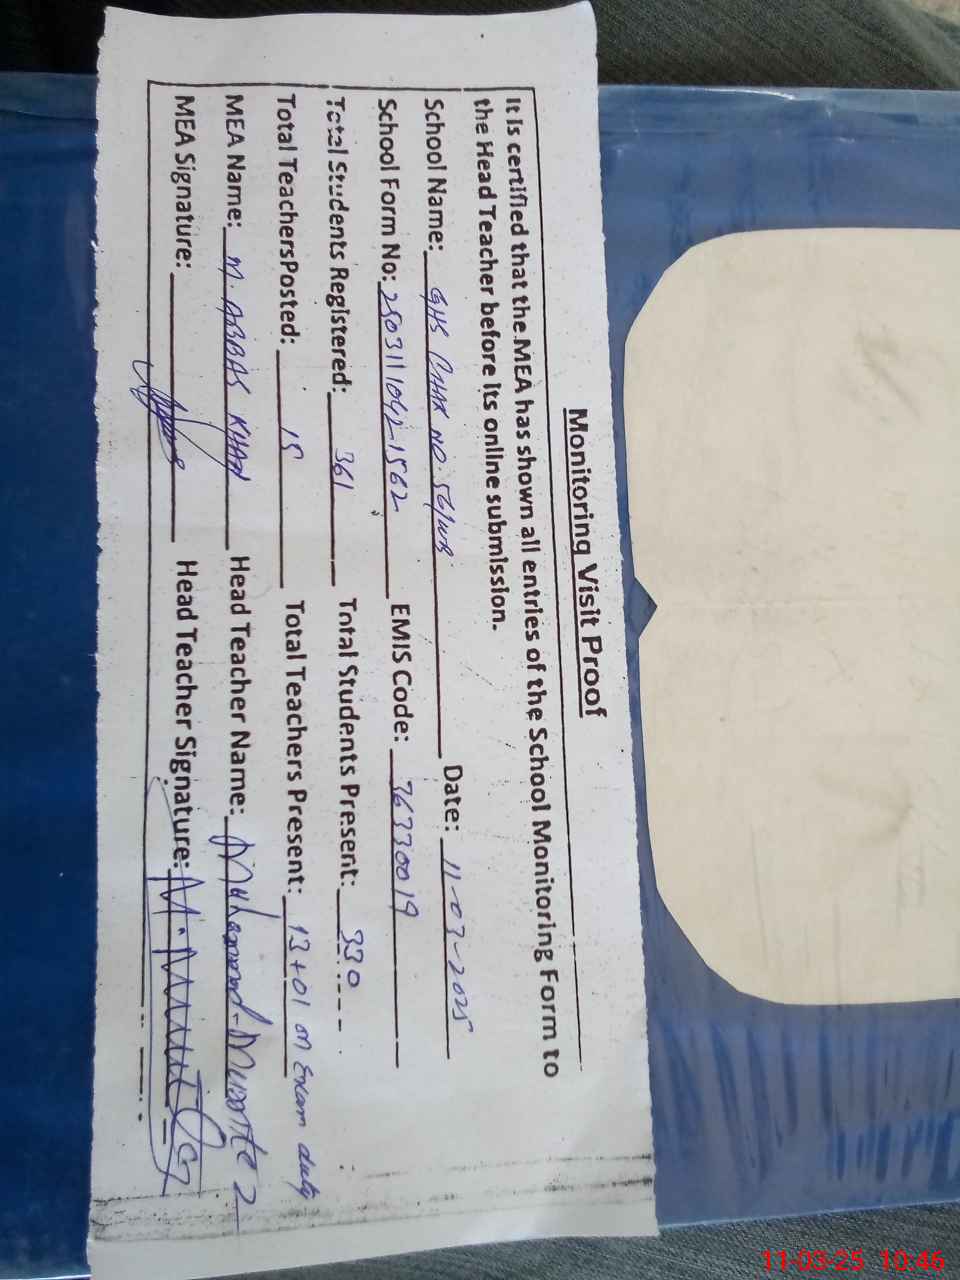 Monitoring Visit Proof
It is certified that the MEA has shown all entries of the School Monitoring Form to
the Head Teacher before its online submission.
School Name: GHS CHAK NO. 56/WB Date: 11-03-2025
School Form No: 250311042-1562 EMIS Code: 36330019
Total Students Registered: 361 Total Students Present: 330
Total Teachers Posted: 15 Total Teachers Present: 13+01 on Exam duty
MEA Name: M. ABBAS KHAN Head Teacher Name: Muhammad
MEA Signature: Head Teacher Signature:
11-03-25 10:46